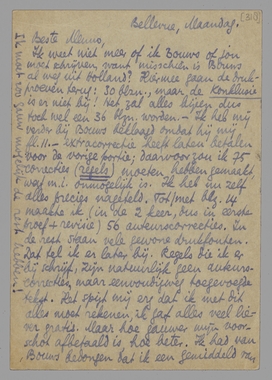 Bellevue, Maandag.
Beste Menno,
Ik weet niet meer of ik Bouws of jou
moet schrijven, want misschien is Bouws
al weg uit Holland? Hiermee gaan de druk-
proeven terug: 30 blzn., maar de Konklusie
is er niet bij! Het zal alles bijeen dus
toch wel een 36 blzn. worden. — Ik heb mij
verder bij Bouws beklaagd omdat hij mij
fl. 11.— extracorrectie heeft laten betalen
voor de vorige portie; daarvoor zou ik 75
correcties (regels) moeten hebben gemaakt
wat m.i. onmogelijk is. Ik heb nu zelf
alles precies nageteld. Tot/met blz. 14
maakte ik (in de 2 keer, dus in eerste
proef + revisie) 56 auteurscorrecties. In
de rest staan vele gewone drukfouten.
Dat tel ik er later bij. Regels die ik er
bij schrijf, zijn natuurlijk geen auteurs-
correcties, maar eenvoudigweg toegevoegde
tekst. Het spijt mij erg dat ik met dit
alles moet rekenen, ik gaf alles veel lie-
ver gratis. Maar hoe gauwer mijn voor-
schot afbetaald is hoe beter. Ik had van
Bouws bedongen dat ik een gemiddeld van